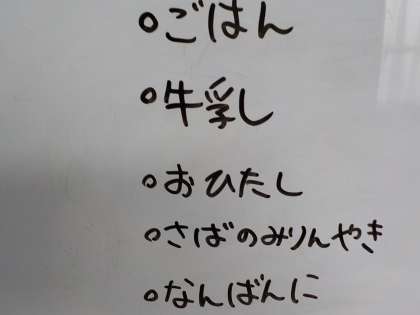 ○ごはん
○牛乳
○おひたし
○さばのみりんやき
○なんばんに